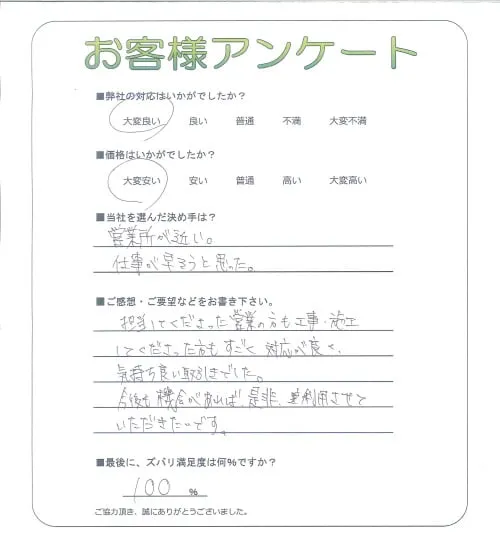 お客様アンケート
■弊社の対応はいかがでしたか？
大変良い 良い 普通 不満 大変不満
■価格はいかがでしたか？
大変安い 安い 普通 高い 大変高い
■当社を選んだ決め手は？
営業所が近い。
仕事が早そうと思った。
■ご感想・ご要望などをお書き下さい。
担当してくださった営業の方も工事・施工
してくださった方もすごく対応が良く、
気持ち良い取引きでした。
今後も機会があれば、是非、利用させて
いただきたいです。
■最後に、ズバリ満足度は何％ですか？
100 ％
ご協力頂き、誠にありがとうございました。